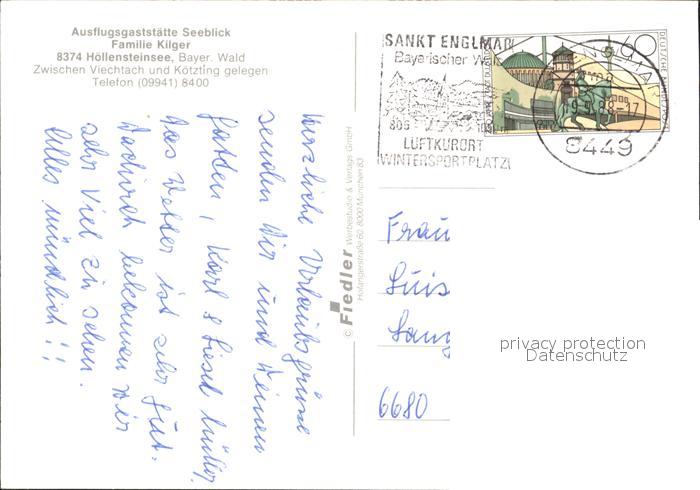 Ausflugsgaststätte Seeblick
Familie Kilger
8374 Höllensteinsee, Bayer. Wald
Zwischen Viechtach und Kötzting gelegen
Telefon (09941) 8400
SANKT ENGLMAR
Bayerischer Wald
805
LUFTKURORT
WINTERSPORTPLATZ
60
DEUTSCHE BUNDESPOST
-9.88-17
8449
Herzliche Urlaubsgrüße
senden Wir und Meinen
Karl & Liesel Müller
das Wetter ist sehr gut.
Dadurch bekommen Wir
sehr Viel zu sehen.
Alles mündlich!!
© Fiedler Werbestudio & Verlags GmbH
Hofangerstraße 60, 8000 München 83
Frau
Luis
Lang
6680
privacy protection
Datenschutz